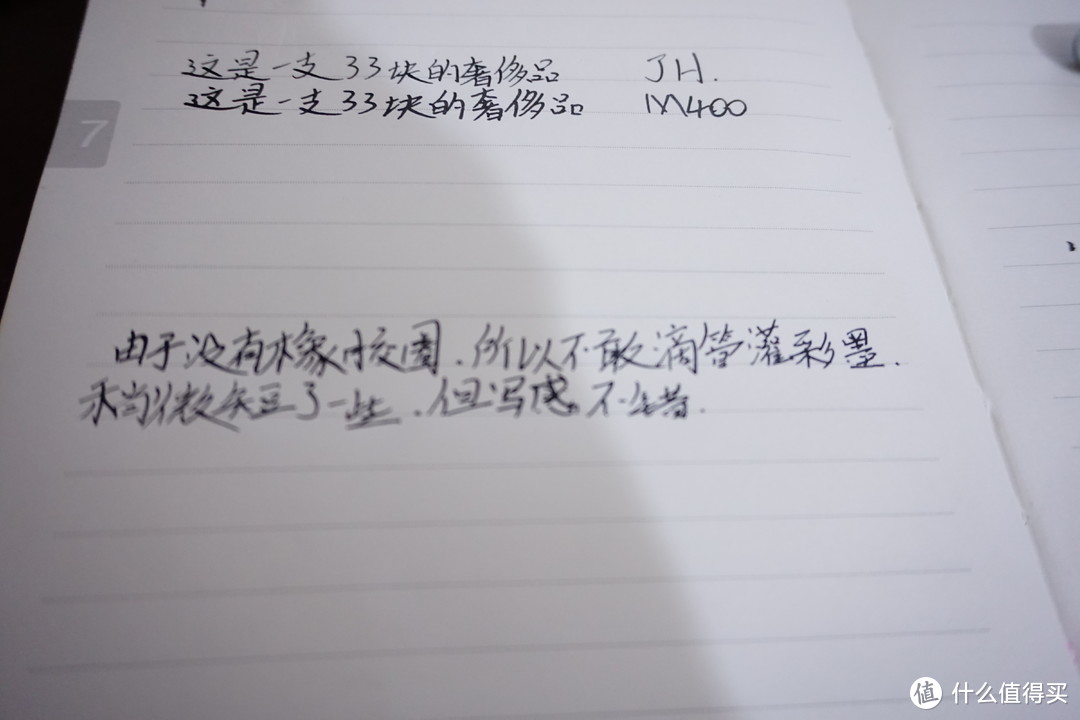 这是一支33块的奢侈品 JH.
这是一支33块的奢侈品 M400
7
由于没有橡胶圈.所以不敢滴管灌彩墨.
了一些.但写感不错.
值 什么值得买